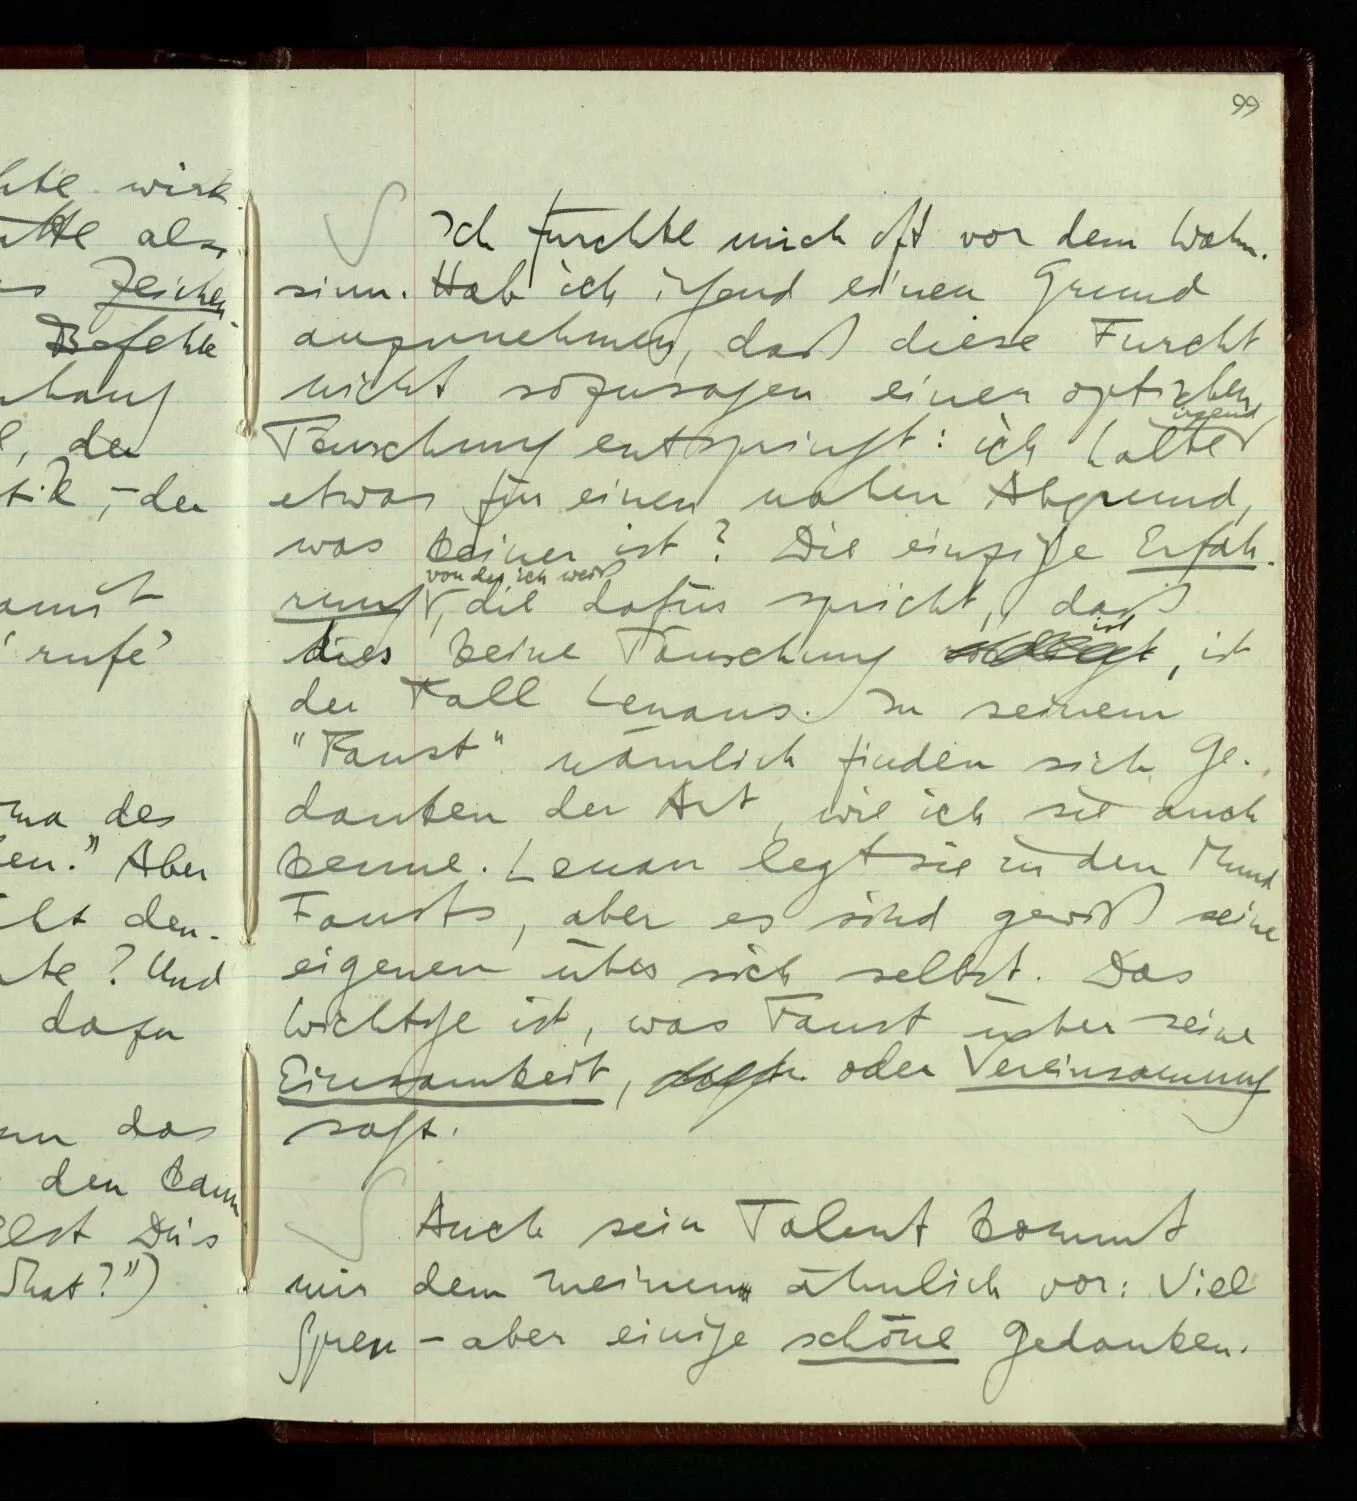 99
wirk
als
Zeichen
Befehle
l, der
– der
rufe'
des
Aber
den-
? Und
dafür
das
den kann
Dies
That?")
Ich fürchte mich oft vor dem Wahn-
sinn. Hab ich irgend einen Grund
anzunehmen, daß diese Furcht
nicht sozusagen einer optischen
irgend
Täuschung entspringt: ich halte
etwas für einen nahen Abgrund,
was keiner ist? Die einzige Erfah-
von der ich weiß
rung, die dafür spricht, daß
ist
dies keine Täuschung, ist
der Fall Lenaus. In seinem
"Faust" nämlich finden sich Ge-
danken der Art, wie ich sie auch
kenne. Lenau legt sie in den Mund
Fausts, aber es sind gewiß seine
eigenen über sich selbst. Das
Wichtige ist, was Faust über seine
Einsamkeit, oder Vereinsamung
sagt.
Auch sein Talent kommt
mir dem meinen ähnlich vor: Viel
Spreu – aber einige schöne Gedanken.